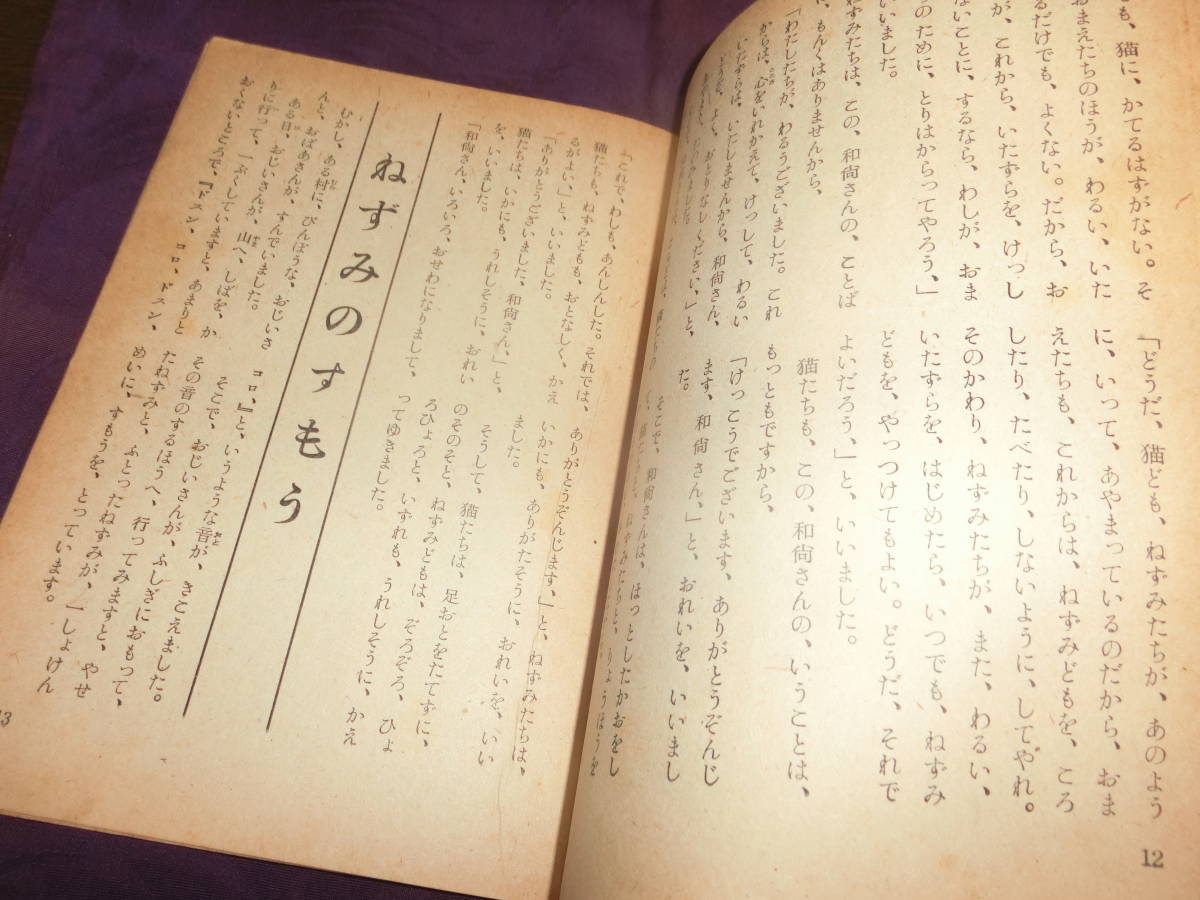 も、猫に、かてるはずがない。そ
おまえたちのほうが、わるい、いた
るだけでも、よくない。だから、お
が、これから、いたずらを、けっし
ないことに、するなら、わしが、おま
のために、とりはからってやろう、」
いいました。
ねずみたちは、この、和尚さんの、ことば
、もんくはありませんから、
「わたしたちが、わるうございました。これ
からは、心をいれかえて、けっして、わるい
いたずらは、いたしませんから、和尚さん、
どうぞ、よく、おとりなしください、」と、
「どうだ、猫ども、ねずみたちが、あのよう
に、いって、あやまっているのだから、おま
えたちも、これからは、ねずみどもを、ころ
したり、たべたり、しないように、してやれ。
そのかわり、ねずみたちが、また、わるい、
いたずらを、はじめたら、いつでも、ねずみ
どもを、やっつけてもよい。どうだ、それで
よいだろう、」と、いいました。
猫たちも、この、和尚さんの、いうことは、
もっともですから、
「けっこうでございます、ありがとうぞんじ
ます、和尚さん、」と、おれいを、いいまし
た。
そこで、和尚さんは、ほっとしたかおをし
12
「これで、わしも、あんしんした。それでは、
猫たちも、ねずみどもも、おとなしく、かえ
るがよい、」と、いいました。
「ありがとうございました、和尚さん、」と、
猫たちは、いかにも、うれしそうに、おれい
を、いいました。
「和尚さん、いろいろ、おせわになりまして、
ありがとうぞんじます、」と、ねずみたちは、
いかにも、ありがたそうに、おれいを、いい
ました。
そうして、猫たちは、足おとをたてずに、
のそのそと、ねずみどもは、ぞろぞろ、ひょ
ろひょろと、いずれも、うれしそうに、かえ
ってゆきました。
ねずみのすもう
むかし、ある村に、びんぼうな、おじいさ
んと、おばあさんが、すんでいました。
ある日、おじいさんが、山へ、しばを、か
りに行って、一ぷくしていますと、あまりと
おくないところで、『ドスン、コロ、ドスン、
コロ、』と、いうような音が、きこえました。
そこで、おじいさんが、ふしぎにおもって、
その音のするほうへ、行ってみますと、やせ
たねずみと、ふとったねずみが、一しょけん
めいに、すもうを、とっています。
13